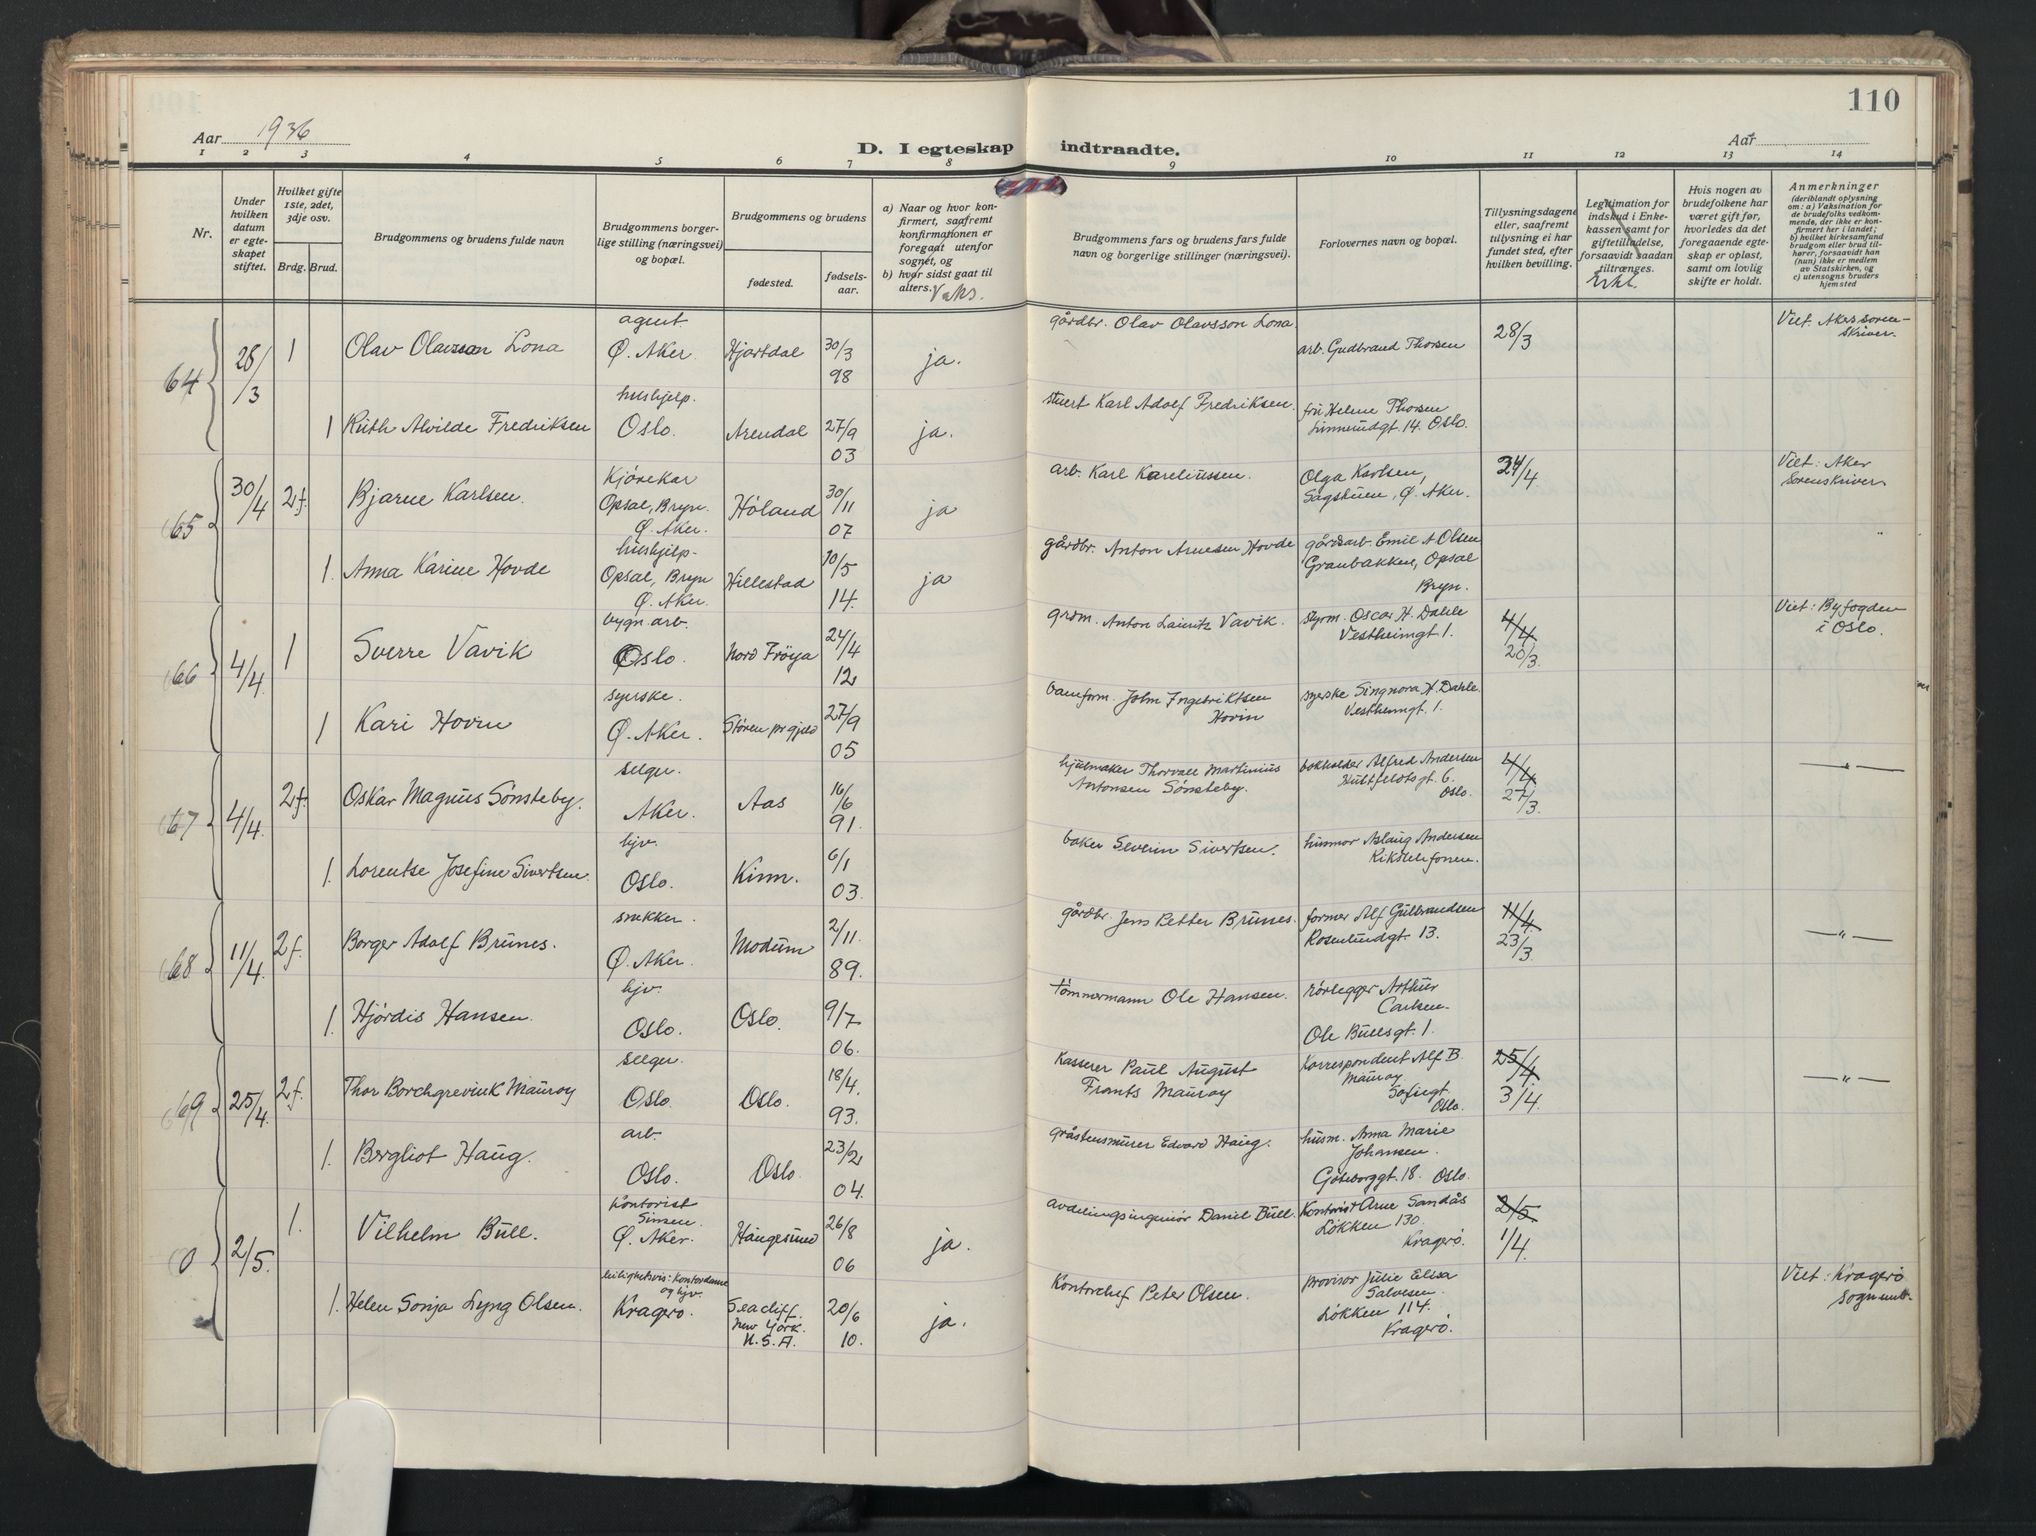 110
Aar 1936
D. I egteskap indtraadte.
Aar
1 2 3 4 5 6 7 8 9 10 11 12 13 14
Nr.
Under hvilken datum er egteskapet stiftet.
Hvilket gifte 1ste, 2det, 3dje osv.
Brdg. Brud.
Brudgommens og brudens fulde navn
Brudgommens borgerlige stilling (næringsvei) og bopæl.
Brudgommens og brudens
fødested.
fødselsaar.
a) Naar og hvor konfirmert, saafremt konfirmationen er foregaat utenfor sognet, og
b) hvor sidst gaat til alters.
Vaks.
Brudgommens fars og brudens fars fulde navn og borgerlige stillinger (næringsvei).
Forlovernes navn og bopæl.
Tillysningsdagene eller, saafremt tillysning ei har fundet sted, efter hvilken bevilling.
Legitimation for indskud i Enkekassen samt for giftetilladelse, forsaavidt saadan tiltrænges.
Erkl.
Hvis nogen av brudefolkene har været gift før, hvorledes da det foregaaende egteskap er opløst, samt om lovlig skifte er holdt.
Anmerkninger (deriblandt oplysning om: a) Vaksination for de brudefolks vedkommende, der ikke er konfirmert her i landet; b) hvilket kirkesamfund brudgom eller brud tilhører, forsaavidt han (hun) ikke er medlem av Statskirken, og c) utensogns bruders hjemsted
64 28/3 1 Olav Olavsson Lona agent Ø. Aker Hjartdal 30/3 98 ja. gårdbr. Olav Olavsson Lona arb. Gudbrand Thorsen 28/3 Viet. Aker sorenskriver.
1 Ruth Alvilde Fredriksen hushjelp. Oslo. Arendal 27/9 03 ja. stuert Karl Adolf Fredriksen. fru Helene Thorsen Linneundgt. 14. Oslo.
65 30/4 2f. Bjarne Karlsen. Kjørekar Opsal, Bryn. Ø. Aker. Høland 30/11 07 ja arb. Karl Kareliussen. Olga Karlsen, Sagstuen, Ø. Aker. 24/4 Viet: Aker Sorenskriver
1. Anna Karine Hovde hushjelp- Opsal, Bryn Ø. Aker. Hillestad 10/5 14. ja gårdbr. Anton Arnesen Hovde gårdsarb. Emil A Olsen Granbakken, Opsal Bryn.
66 4/4. 1 Sverre Vavik bygn. arb. Oslo. Nord Frøya 24/4 12 Anton Lauritz Vavik. styrm. Oscar H. Dahle Vestheimgt 1. 4/4 20/3. Viet: Byfogden i Oslo.
1 Kari Hovin syerske. Ø. Aker. Støren pr.gjeld 27/9 05 baneform. John Ingebriktsen Hovin syerske Singnora H. Dahle. Vestheimgt. 1.
67 4/4. 2f. Oskar Magnus Sønsteby. selger. Aker. Aas 16/6 91. hjulmaker Thorvall Martinius Antonsen Sønsteby. bokholder Alfred Andersen Hultfeldtsgt. 6. Oslo. 4/4 27/3. — " —
1. Lorentse Josefine Sivertsen. hjv. Oslo. Kinn. 6/1 03. baker Severin Sivertsen. husmor Aslaug Andersen Rikstelefonen.
68 11/4. 2f. Borger Adolf Brunes. snekker. Ø. Aker. Modum 2/11. 89. gårdbr. Jens Petter Brunes. former Alf Gulbrandsen Rosenlundgt. 13. 11/4. 23/3. — " —
1. Hjørdis Hansen. hjv. Oslo. Oslo. 9/7 06. tømmermann Ole Hansen. rørlegger Arthur Carlsen. Ole Bullsgt. 1.
69 25/4. 2f. Thor Borchgrevink Mauroy selger. Oslo. Oslo. 18/4. 93. Kasserer Paul August Frants Mauroy Korrespondent Alf B. Mauroy Sofiegt. Oslo. 25/4. 3/4. — " —
1. Bergliot Haug. arb. Oslo. Oslo. 23/2 04. gråstensmurer Edvard Haug. husm. Anna Marie Johansen. Göteborggt. 18. Oslo.
0 2/5. 1. Vilhelm Bull. Kontorist Sinsen. Ø. Aker. Haugesund 26/8 06 ja. avdelingsingeniør Daniel Bull. Kontorist Arne Sandås Løkken 130. Kragerø. 2/5 1/4.
1. Helen Sonja Lyng Olsen. leilighetsvis: Kontordame og hjv. Kragerø. Seacliff. New York. U.S.A. 20/6 10. ja. Kontorchef Peter Olsen. provisor Julie Elisa Salvesen. Løkken 114. Kragerø. Viet: Kragerø Sogn